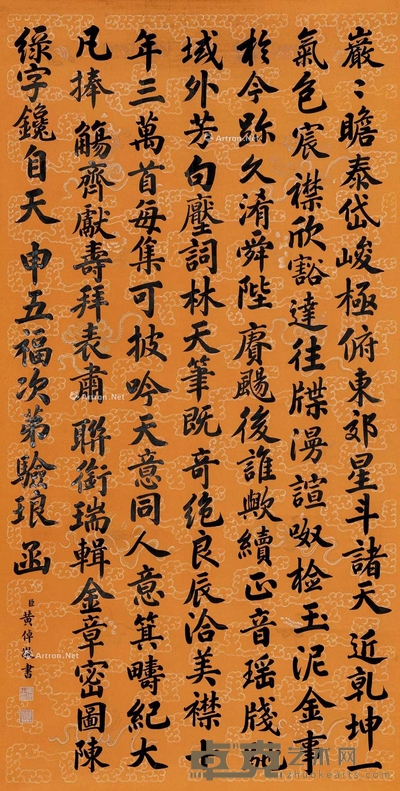 巖〻瞻泰岱峻極俯東郊星斗諸天近乾坤一
氣色宸襟欣豁達往牒漫諠呶檢玉泥金事
於今跡久淆舜陛賡颺後誰歟續正音瑶牋馳
域外芳句壓詞林天筆既奇絶良辰洽美襟卜
年三萬首每集可披吟天意同人意箕疇紀大
凡捧觴齊獻壽拜表肅聯銜瑞輯金章密圖陳
綠字鑱自天申五福次第驗琅函
臣黄倬恭書
Artron.Net
卓克艺术网